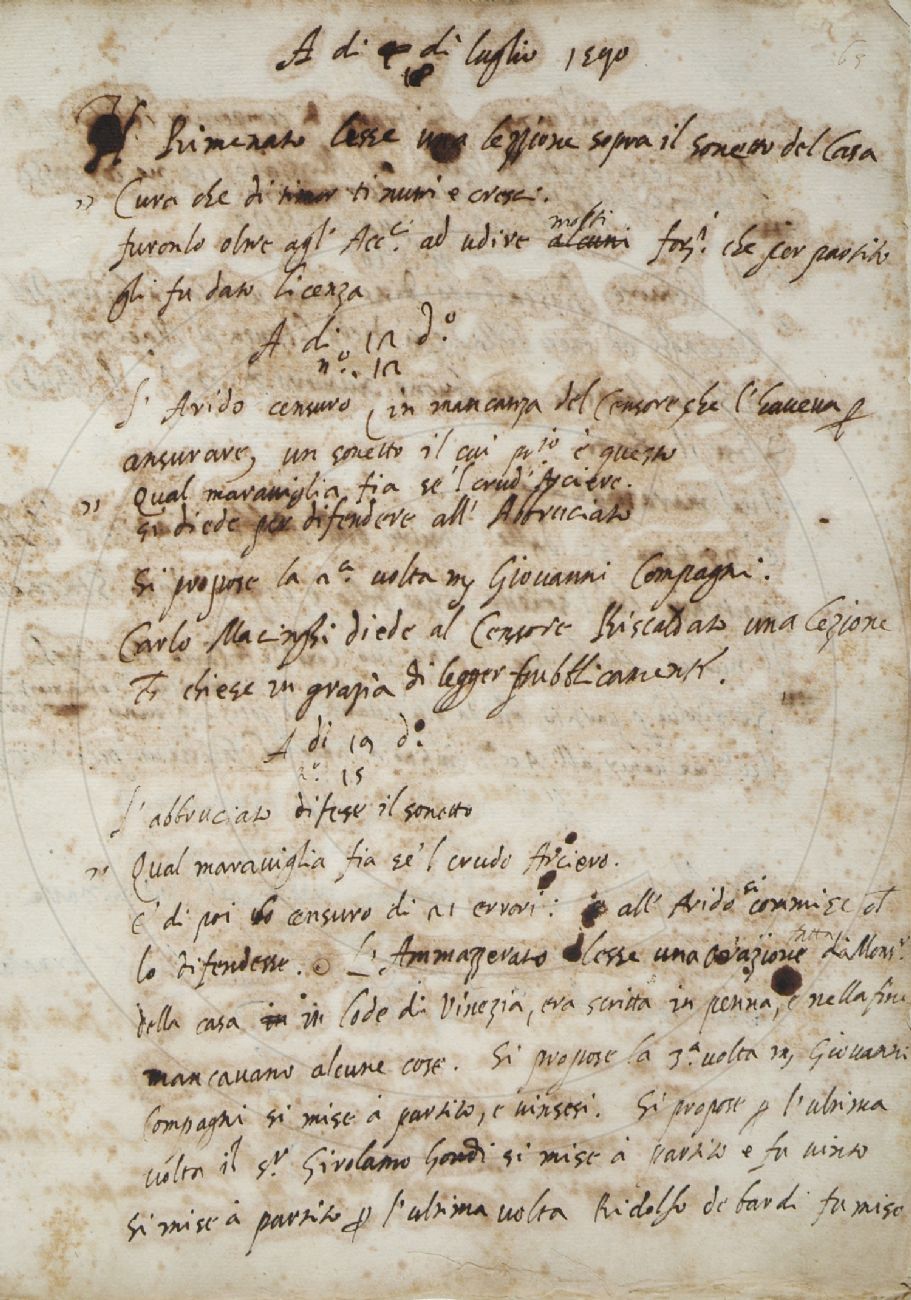 A di di luglio 1590
18
Il Rimenato lesse una lezzione sopra il sonetto del Casa
" Cura che di timor ti nutri e cresci.
furonlo oltre agl' Acc.ci ad udire alcuni molti fors.ri che per partito
gli fu dato licenza
A di 12 d.o
n.o 12
L' Arido censurò, in mancanza del Censore che l'haveva p
censurare, un sonetto il cui p.rio è questo
" Qual maraviglia fia se'l crud' Arciere.
Si diede per difendere all' Abbruciato
Si propose la 2.a volta m. Giovanni Compagni.
Carlo Macinghi diede al Censore Riscaldato una lezione
Et chiese in grazia di legger pubblicamente.
A di 19 d.o
n.o 15
L' abbruciato difese il sonetto
" Qual maraviglia fia se'l crudo Arciero.
E' di poi lo censurò di 21 errori: e all' Arido si commise ch
lo difendesse. L' Ammazzerato lesse una orazione fatta da Mons.r
della casa in in lode di Vinezia, era scritta in penna, e nella fine
mancavano alcune cose. Si propose la 3.a volta m. Giovanni
Compagni si mise à partito, e vinsesi. Si propose p l'ultima
volta il S.r Girolamo Gondi si mise à partito e fu vinto
Si mise à partito p l'ultima volta Ridolfo de bardi fu mise